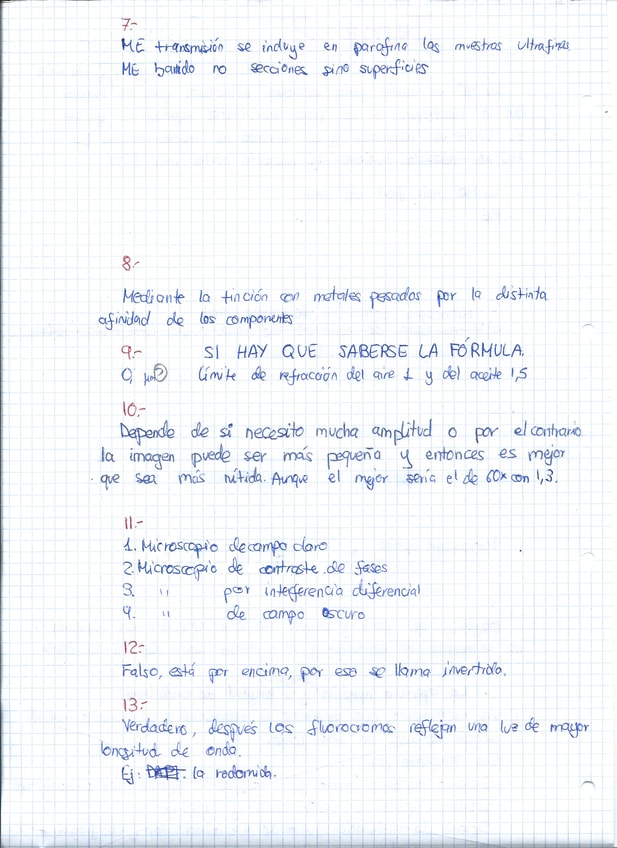 7.-
ME transmisión se incluye en parafina las muestras ultrafinas
ME barrido no secciones sino superficies
8.-
Mediante la tinción con metales pesados por la distinta
afinidad de los componentes
9.- SI HAY QUE SABERSE LA FÓRMULA.
0, µm? Límite de refracción del aire 1 y del aceite 1,5
10.-
Depende de si necesito mucha amplitud o por el contrario
la imagen puede ser más pequeña y entonces es mejor
que sea más nítida. Aunque el mejor sería el de 60x con 1,3.
11.-
1. Microscopio de campo claro
2. Microscopio de contraste de fases
3. " por interferencia diferencial
4. " de campo oscuro
12.-
Falso, está por encima, por eso se llama invertido.
13.-
Verdadero, después los fluorocromos reflejan una luz de mayor
longitud de onda.
Ej: la rodamida.